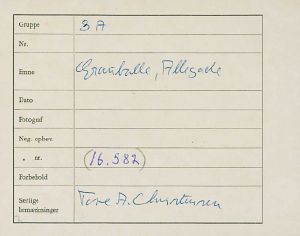 Gruppe 3 A
Nr.
Emne Grauballe, Allegade
Dato
Fotograf
Neg. opbev.
" nr. (16.582)
Forbehold
Særlige bemærkninger Tove A. Christensen